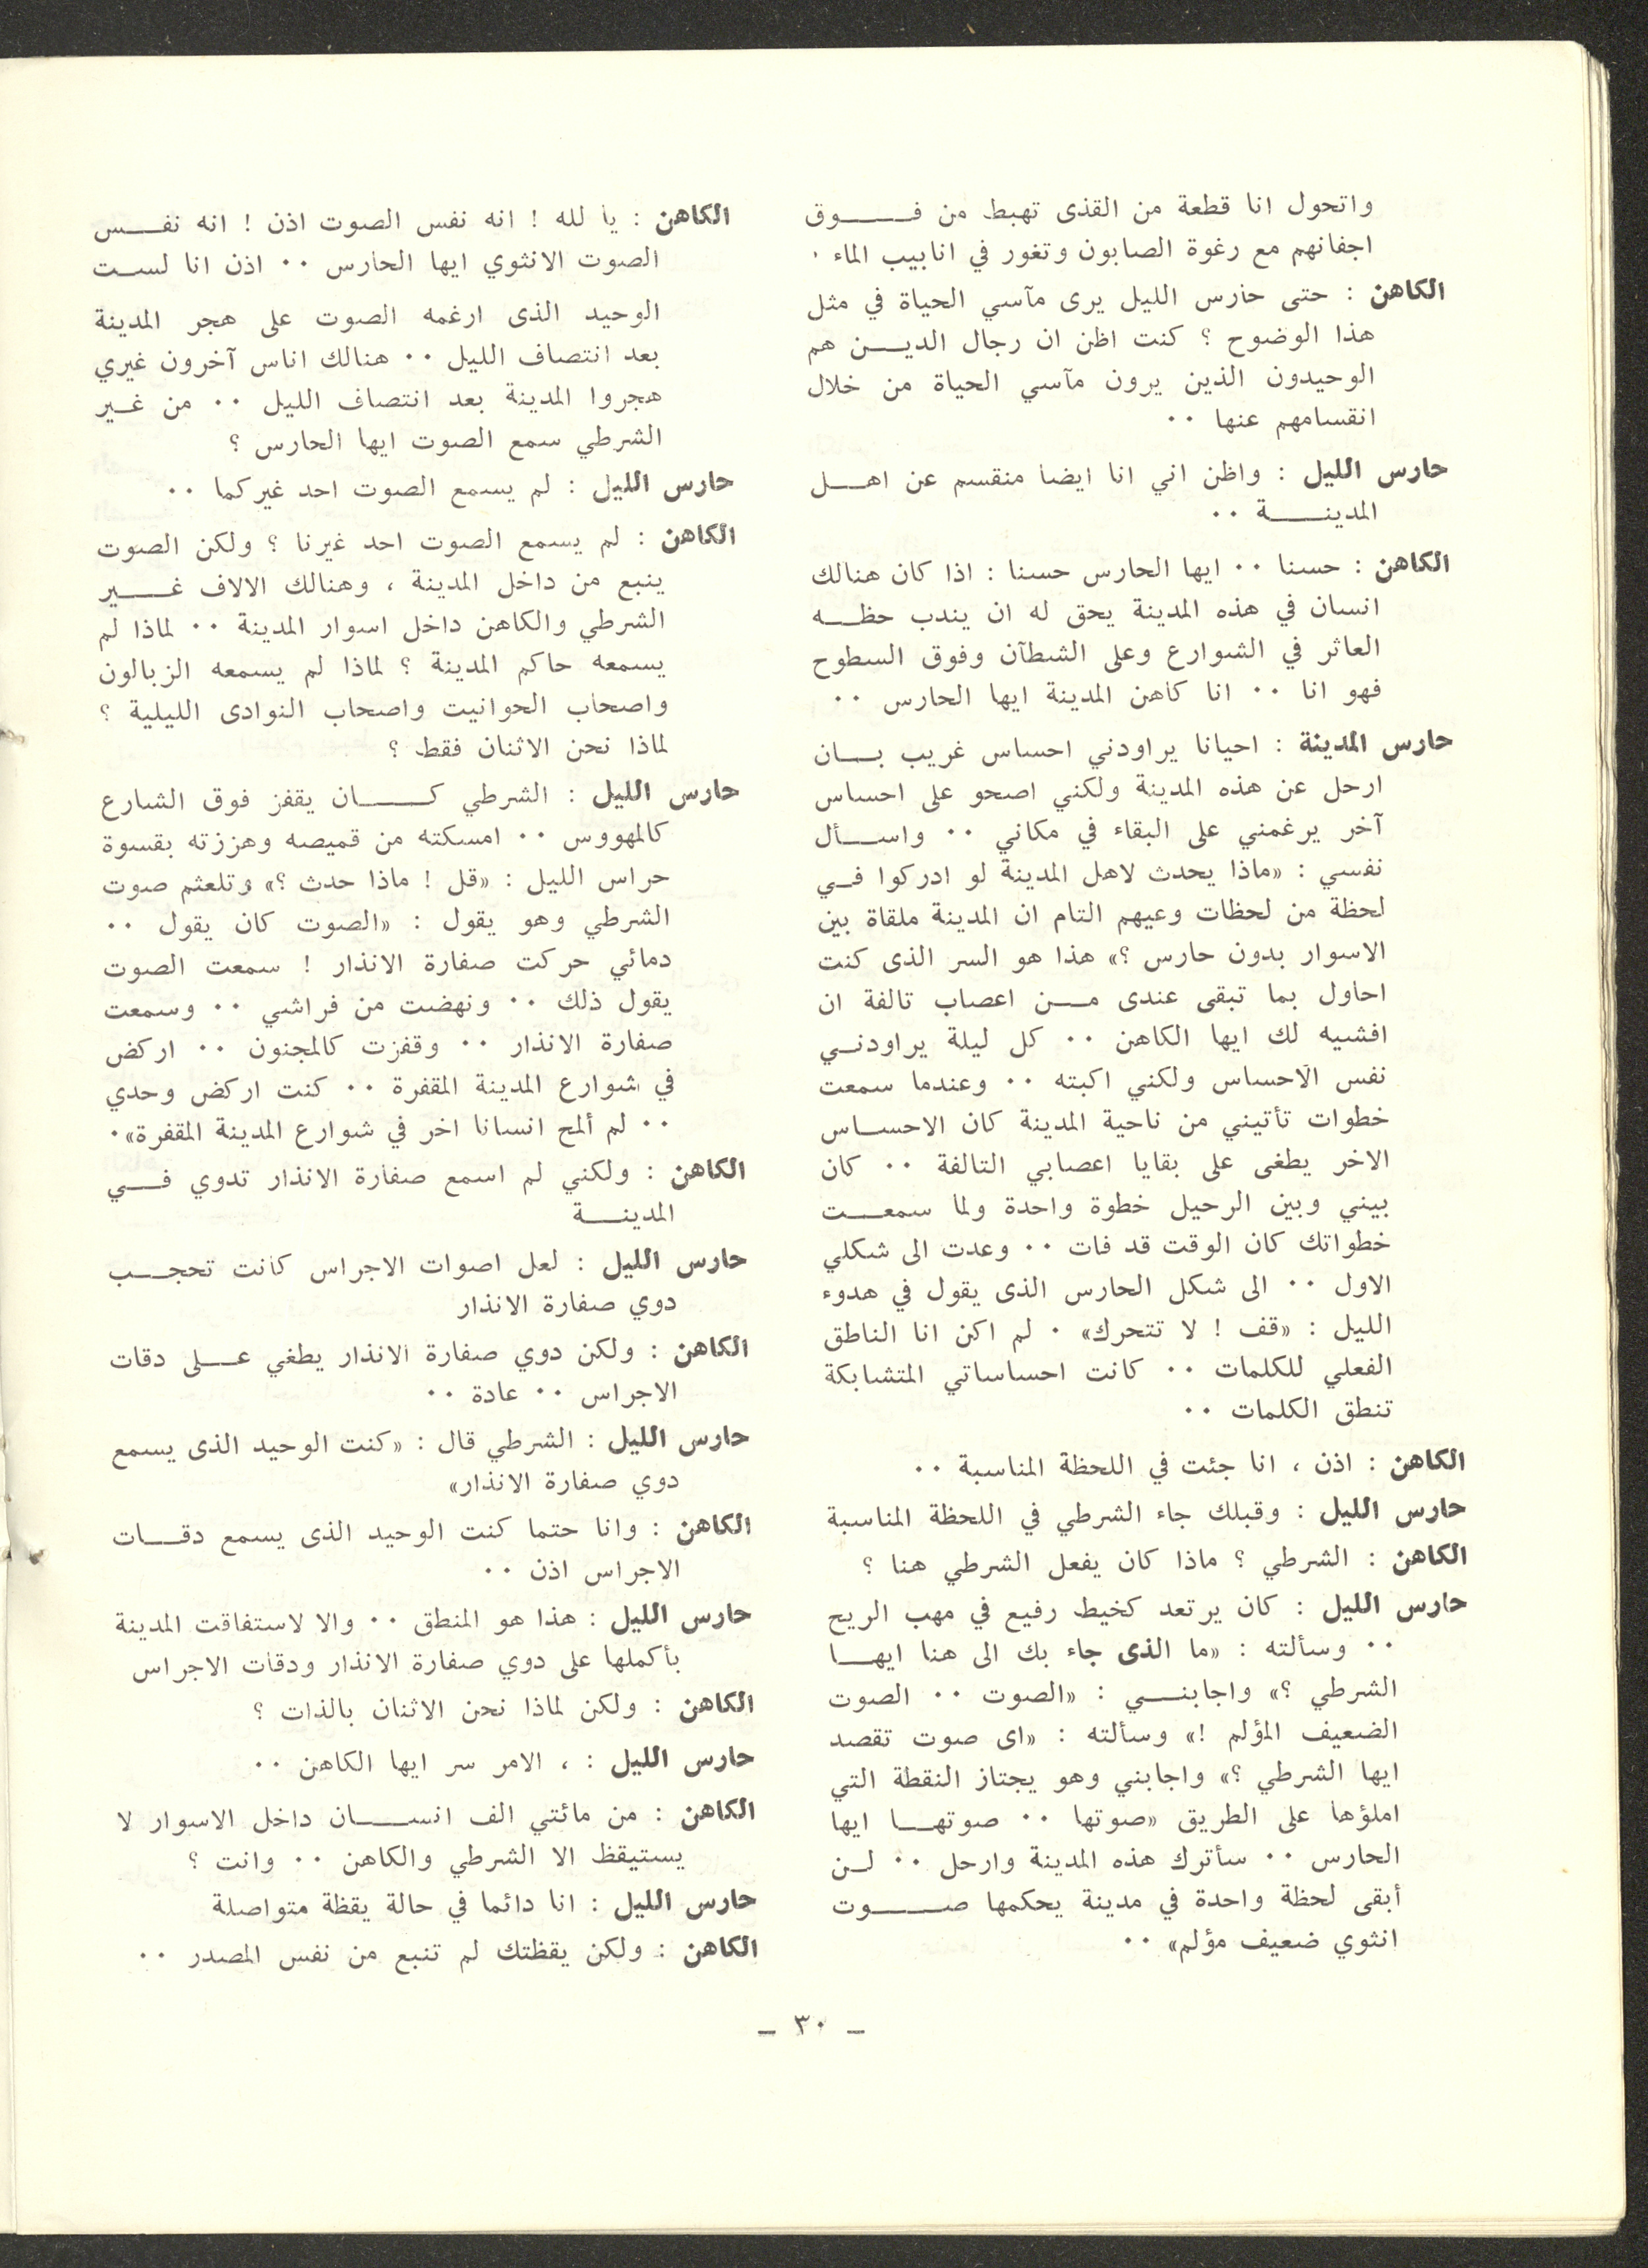 واتحول انا قطعة من القذى تهبط من فوق
اجفانهم مع رغوة الصابون وتغور في انابيب الماء ٠
الكاهن : حتى حارس الليل يرى مآسي الحياة في مثل
هذا الوضوح ؟ كنت اظن ان رجال الدين هم
الوحيدون الذين يرون مآسي الحياة من خلال
انقسامهم عنها ٠٠
حارس الليل : واظن اني انا ايضا منقسم عن اهل
المدينة ٠٠
الكاهن : حسنا ٠٠ ايها الحارس حسنا : اذا كان هنالك
انسان في هذه المدينة يحق له ان يندب حظه
العاثر في الشوارع وعلى الشطآن وفوق السطوح
فهو انا ٠٠ انا كاهن المدينة ايها الحارس ٠٠
حارس المدينة : احيانا يراودني احساس غريب بان
ارحل عن هذه المدينة ولكني اصحو على احساس
آخر يرغمني على البقاء في مكاني ٠٠ واسأل
نفسي : «ماذا يحدث لاهل المدينة لو ادركوا في
لحظة من لحظات وعيهم التام ان المدينة ملقاة بين
الاسوار بدون حارس ؟» هذا هو السر الذى كنت
احاول بما تبقى عندى من اعصاب تالفة ان
افشيه لك ايها الكاهن ٠٠ كل ليلة يراودني
نفس الاحساس ولكني اكبته ٠٠ وعندما سمعت
خطوات تأتيني من ناحية المدينة كان الاحساس
الاخر يطغى على بقايا اعصابي التالفة ٠٠ كان
بيني وبين الرحيل خطوة واحدة ولما سمعت
خطواتك كان الوقت قد فات ٠٠ وعدت الى شكلي
الاول ٠٠ الى شكل الحارس الذى يقول في هدوء
الليل : «قف ! لا تتحرك» ٠ لم اكن انا الناطق
الفعلي للكلمات ٠٠ كانت احساساتي المتشابكة
تنطق الكلمات ٠٠
الكاهن : اذن ، انا جئت في اللحظة المناسبة ٠٠
حارس الليل : وقبلك جاء الشرطي في اللحظة المناسبة
الكاهن : الشرطي ؟ ماذا كان يفعل الشرطي هنا ؟
حارس الليل : كان يرتعد كخيط رفيع في مهب الريح
٠٠ وسألته : «ما الذى جاء بك الى هنا ايها
الشرطي ؟» واجابني : «الصوت ٠٠ الصوت
الضعيف المؤلم !» وسألته : «اى صوت تقصد
ايها الشرطي ؟» واجابني وهو يجتاز النقطة التي
املؤها على الطريق «صوتها ٠٠ صوتها ايها
الحارس ٠٠ سأترك هذه المدينة وارحل ٠٠ لن
أبقى لحظة واحدة في مدينة يحكمها صوت
انثوي ضعيف مؤلم» ٠٠
الكاهن : يا لله ! انه نفس الصوت اذن ! انه نفس
الصوت الانثوي ايها الحارس ٠٠ اذن انا لست
الوحيد الذى ارغمه الصوت على هجر المدينة
بعد انتصاف الليل ٠٠ هنالك اناس آخرون غيري
هجروا المدينة بعد انتصاف الليل ٠٠ من غير
الشرطي سمع الصوت ايها الحارس ؟
حارس الليل : لم يسمع الصوت احد غيركما ٠٠
الكاهن : لم يسمع الصوت احد غيرنا ؟ ولكن الصوت
ينبع من داخل المدينة ، وهنالك الالاف غير
الشرطي والكاهن داخل اسوار المدينة ٠٠ لماذا لم
يسمعه حاكم المدينة ؟ لماذا لم يسمعه الزبالون
واصحاب الحوانيت واصحاب النوادى الليلية ؟
لماذا نحن الاثنان فقط ؟
حارس الليل : الشرطي كان يقفز فوق الشارع
كالمهووس ٠٠ امسكته من قميصه وهززته بقسوة
حراس الليل : «قل ! ماذا حدث ؟» وتلعثم صوت
الشرطي وهو يقول : «الصوت كان يقول ٠٠
دمائي حركت صفارة الانذار ! سمعت الصوت
يقول ذلك ٠٠ ونهضت من فراشي ٠٠ وسمعت
صفارة الانذار ٠٠ وقفزت كالمجنون ٠٠ اركض
في شوارع المدينة المقفرة ٠٠ كنت اركض وحدي
٠٠ لم ألمح انسانا اخر في شوارع المدينة المقفرة»٠
الكاهن : ولكني لم اسمع صفارة الانذار تدوي في
المدينة
حارس الليل : لعل اصوات الاجراس كانت تحجب
دوي صفارة الانذار
الكاهن : ولكن دوي صفارة الانذار يطغي على دقات
الاجراس ٠٠ عادة ٠٠
حارس الليل : الشرطي قال : «كنت الوحيد الذى يسمع
دوي صفارة الانذار»
الكاهن : وانا حتما كنت الوحيد الذى يسمع دقات
الاجراس اذن ٠٠
حارس الليل : هذا هو المنطق ٠٠ والا لاستفاقت المدينة
بأكملها على دوي صفارة الانذار ودقات الاجراس
الكاهن : ولكن لماذا نحن الاثنان بالذات ؟
حارس الليل : ، الامر سر ايها الكاهن ٠٠
الكاهن : من مائتي الف انسان داخل الاسوار لا
يستيقظ الا الشرطي والكاهن ٠٠ وانت ؟
حارس الليل : انا دائما في حالة يقظة متواصلة
الكاهن : ولكن يقظتك لم تنبع من نفس المصدر ٠٠
– ٣٠ –